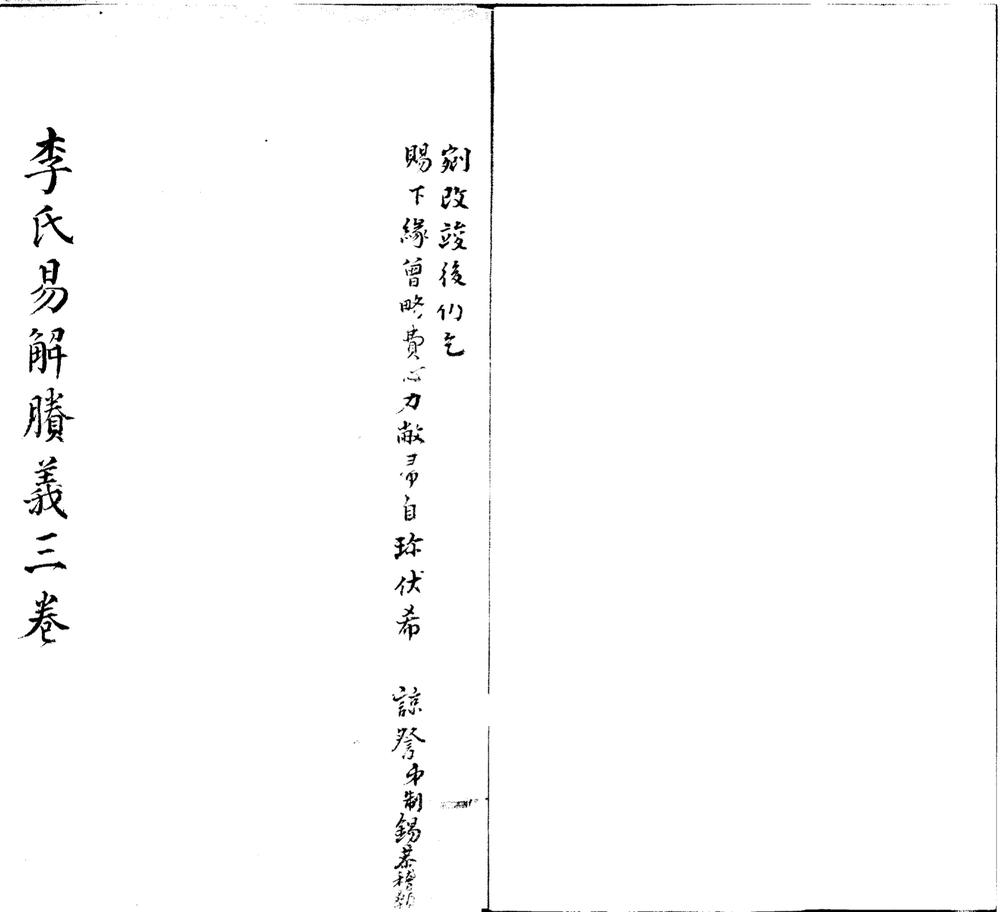 剜改竣後仍乞
賜下緣曾略費心力敝帚自珍伏希 諒詧弟制錫恭稽顙
李氏易解賸義三卷